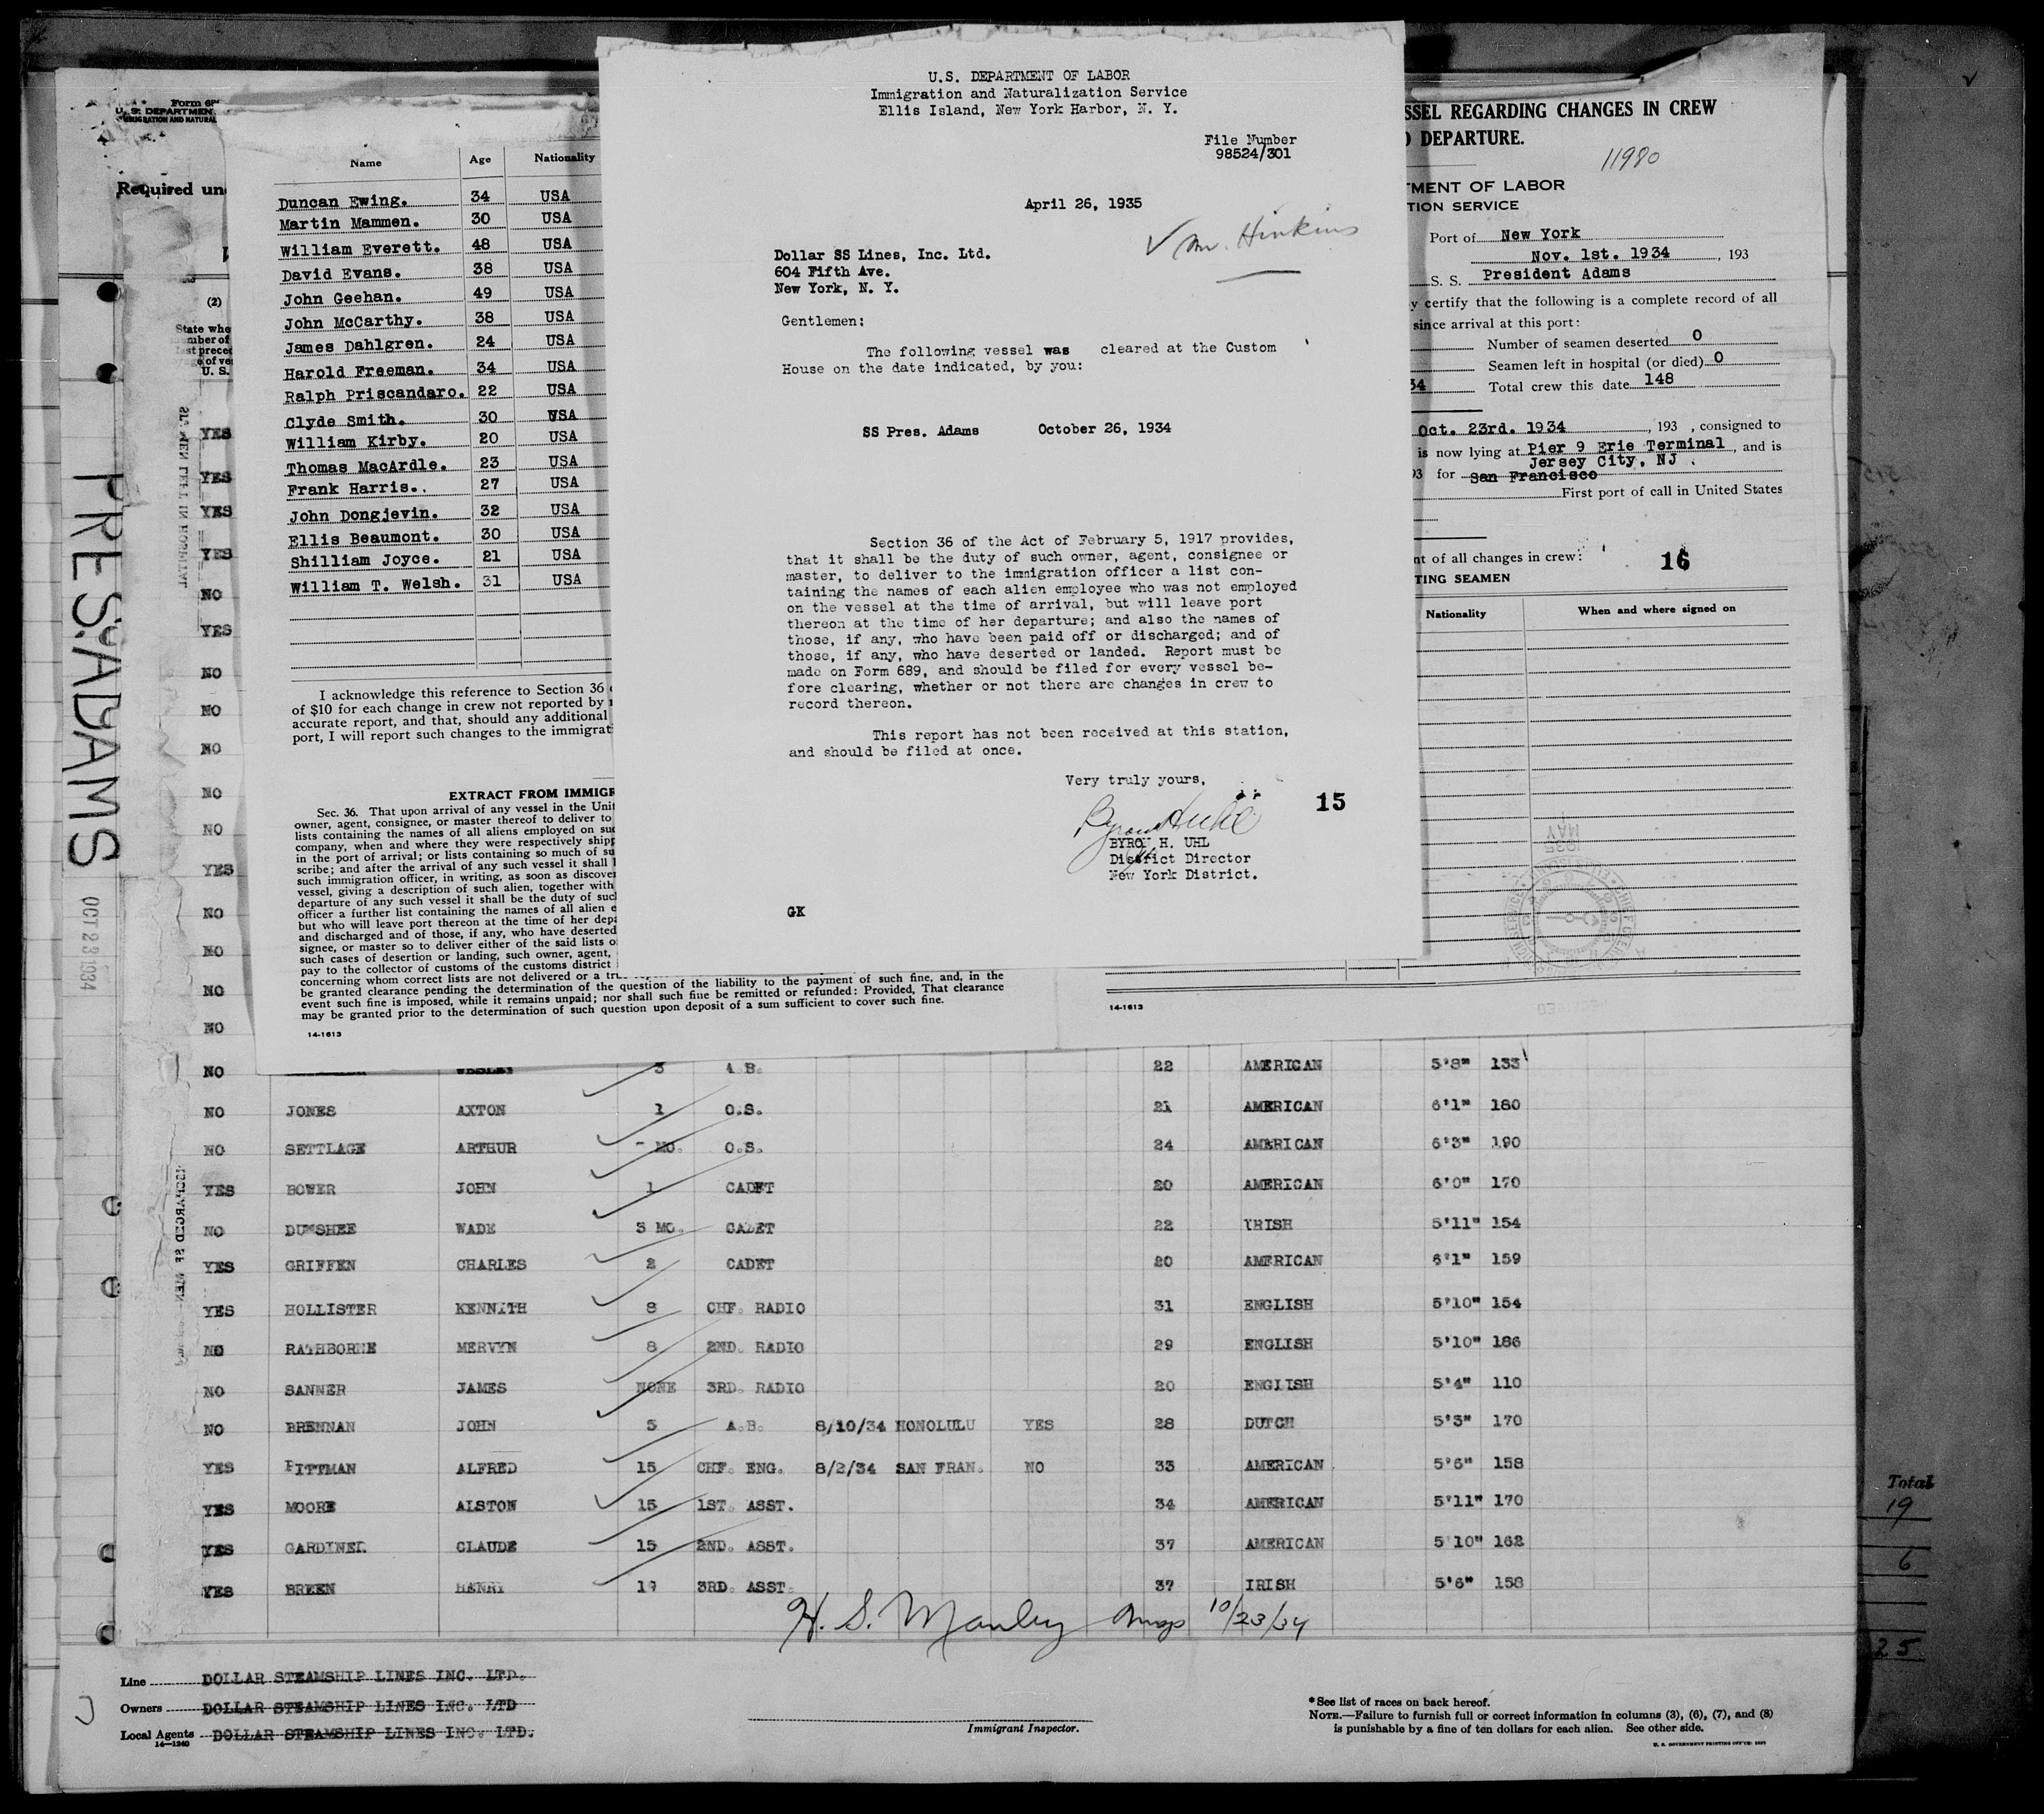 U.S. DEPARTMENT OF LABOR
Immigration and Naturalization Service
Ellis Island, New York Harbor, N. Y.
File Number
98524/301
April 26, 1935
✓ Mr. Hinkins
Dollar SS Lines, Inc. Ltd.
604 Fifth Ave.
New York, N. Y.
Gentlemen:
The following vessel was cleared at the Custom
House on the date indicated, by you:
SS Pres. Adams October 26, 1934
Section 36 of the Act of February 5, 1917 provides,
that it shall be the duty of such owner, agent, consignee or
master, to deliver to the immigration officer a list con-
taining the names of each alien employee who was not employed
on the vessel at the time of arrival, but will leave port
thereon at the time of her departure; and also the names of
those, if any, who have been paid off or discharged; and of
those, if any, who have deserted or landed. Report must be
made on Form 689, and should be filed for every vessel be-
fore clearing, whether or not there are changes in crew to
record thereon.
This report has not been received at this station,
and should be filed at once.
Very truly yours,
Byron H Uhl
15
BYRON H. UHL
District Director
New York District.
GK
U. S. DEPARTMEN
Required un
(2)
State whe
U. S.
PRES. ADAMS
OCT 23 1934
Name Age Nationality
Duncan Ewing. 34 USA
Martin Mammen. 30 USA
William Everett. 48 USA
David Evans. 38 USA
John Geehan. 49 USA
John McCarthy. 38 USA
James Dahlgren. 24 USA
Harold Freeman. 34 USA
Ralph Priscandaro. 22 USA
Clyde Smith. 30 USA
William Kirby. 20 USA
Thomas MacArdle. 23 USA
Frank Harris. 27 USA
John Dongjevin. 32 USA
Ellis Beaumont. 30 USA
Shilliam Joyce. 21 USA
William T. Welsh. 31 USA
I acknowledge this reference to Section 36
of $10 for each change in crew not reported by
accurate report, and that, should any additional
port, I will report such changes to the immigrat
EXTRACT FROM IMMIGR
Sec. 36. That upon arrival of any vessel in the Unit
owner, agent, consignee, or master thereof to deliver to
lists containing the names of all aliens employed on su
company, when and where they were respectively shipp
in the port of arrival; or lists containing so much of su
scribe; and after the arrival of any such vessel it shall
such immigration officer, in writing, as soon as discove
vessel, giving a description of such alien, together with
departure of any such vessel it shall be the duty of suc
officer a further list containing the names of all alien e
but who will leave port thereon at the time of her depa
and discharged and of those, if any, who have deserted
signee, or master so to deliver either of the said lists o
such cases of desertion or landing, such owner, agent,
pay to the collector of customs of the customs district
concerning whom correct lists are not delivered or a tru
be granted clearance pending the determination of the question of the liability to the payment of such fine, and, in the
event such fine is imposed, while it remains unpaid; nor shall such fine be remitted or refunded: Provided, That clearance
may be granted prior to the determination of such question upon deposit of a sum sufficient to cover such fine.
14-1613
SSEL REGARDING CHANGES IN CREW
DEPARTURE.
11980
TMENT OF LABOR
TION SERVICE
Port of New York
Nov. 1st. 1934, 193
S. S. President Adams
y certify that the following is a complete record of all
since arrival at this port:
Number of seamen deserted 0
Seamen left in hospital (or died) 0
34 Total crew this date 148
Oct. 23rd. 1934, 193 , consigned to
is now lying at Pier 9 Erie Terminal, and is
Jersey City, NJ.
93 for San Francisco
First port of call in United States
nt of all changes in crew:
16
TING SEAMEN
Nationality When and where signed on
14-1613
YES
YES
YES
YES
NO
YES
NO
NO
NO
NO
NO
YES
NO
NO
NO
NO
NO WESLEY 3 A.B. 22 AMERICAN 5'8" 133
NO JONES AXTON 1 O.S. 21 AMERICAN 6'1" 180
NO SETTLAGE ARTHUR - MO. O.S. 24 AMERICAN 6'3" 190
YES BOWER JOHN 1 CADET 20 AMERICAN 6'0" 170
NO DUMSHEE WADE 3 MO. CADET 22 IRISH 5'11" 154
YES GRIFFEN CHARLES 2 CADET 20 AMERICAN 6'1" 159
YES HOLLISTER KENNETH 8 CHF. RADIO 31 ENGLISH 5'10" 154
NO RATHBORNE MERVYN 8 2ND. RADIO 29 ENGLISH 5'10" 186
NO SANNER JAMES NONE 3RD. RADIO 20 ENGLISH 5'4" 110
NO BRENNAN JOHN 5 A.B. 8/10/34 HONOLULU YES 28 DUTCH 5'3" 170
YES PITTMAN ALFRED 15 CHF. ENG. 8/2/34 SAN FRAN. NO 33 AMERICAN 5'6" 158
YES MOORE ALSTON 15 1ST. ASST. 34 AMERICAN 5'11" 170
YES GARDINER CLAUDE 15 2ND. ASST. 37 AMERICAN 5'10" 162
YES BREEN HENRY 19 3RD. ASST. 37 IRISH 5'6" 158
H. S. Manley Insp 10/23/34
Total
19
6
25
Line DOLLAR STEAMSHIP LINES INC. LTD.
Owners DOLLAR STEAMSHIP LINES INC. LTD
Local Agents DOLLAR STEAMSHIP LINES INC. LTD.
14-1240
Immigrant Inspector.
*See list of races on back hereof.
NOTE.—Failure to furnish full or correct information in columns (3), (6), (7), and (8)
is punishable by a fine of ten dollars for each alien. See other side.